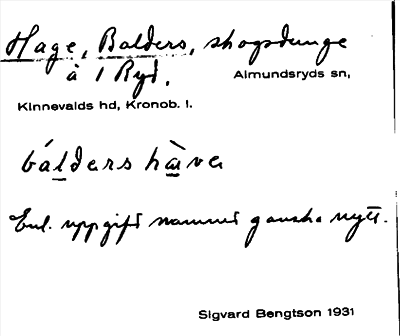 Hage, Balders, skogsdunge
å 1 Ryd.
Almundsryds sn,
Kinnevalds hd, Kronob. l.
bálders hàven
Enl. uppgift namnet ganska nytt.
Sigvard Bengtson 1931